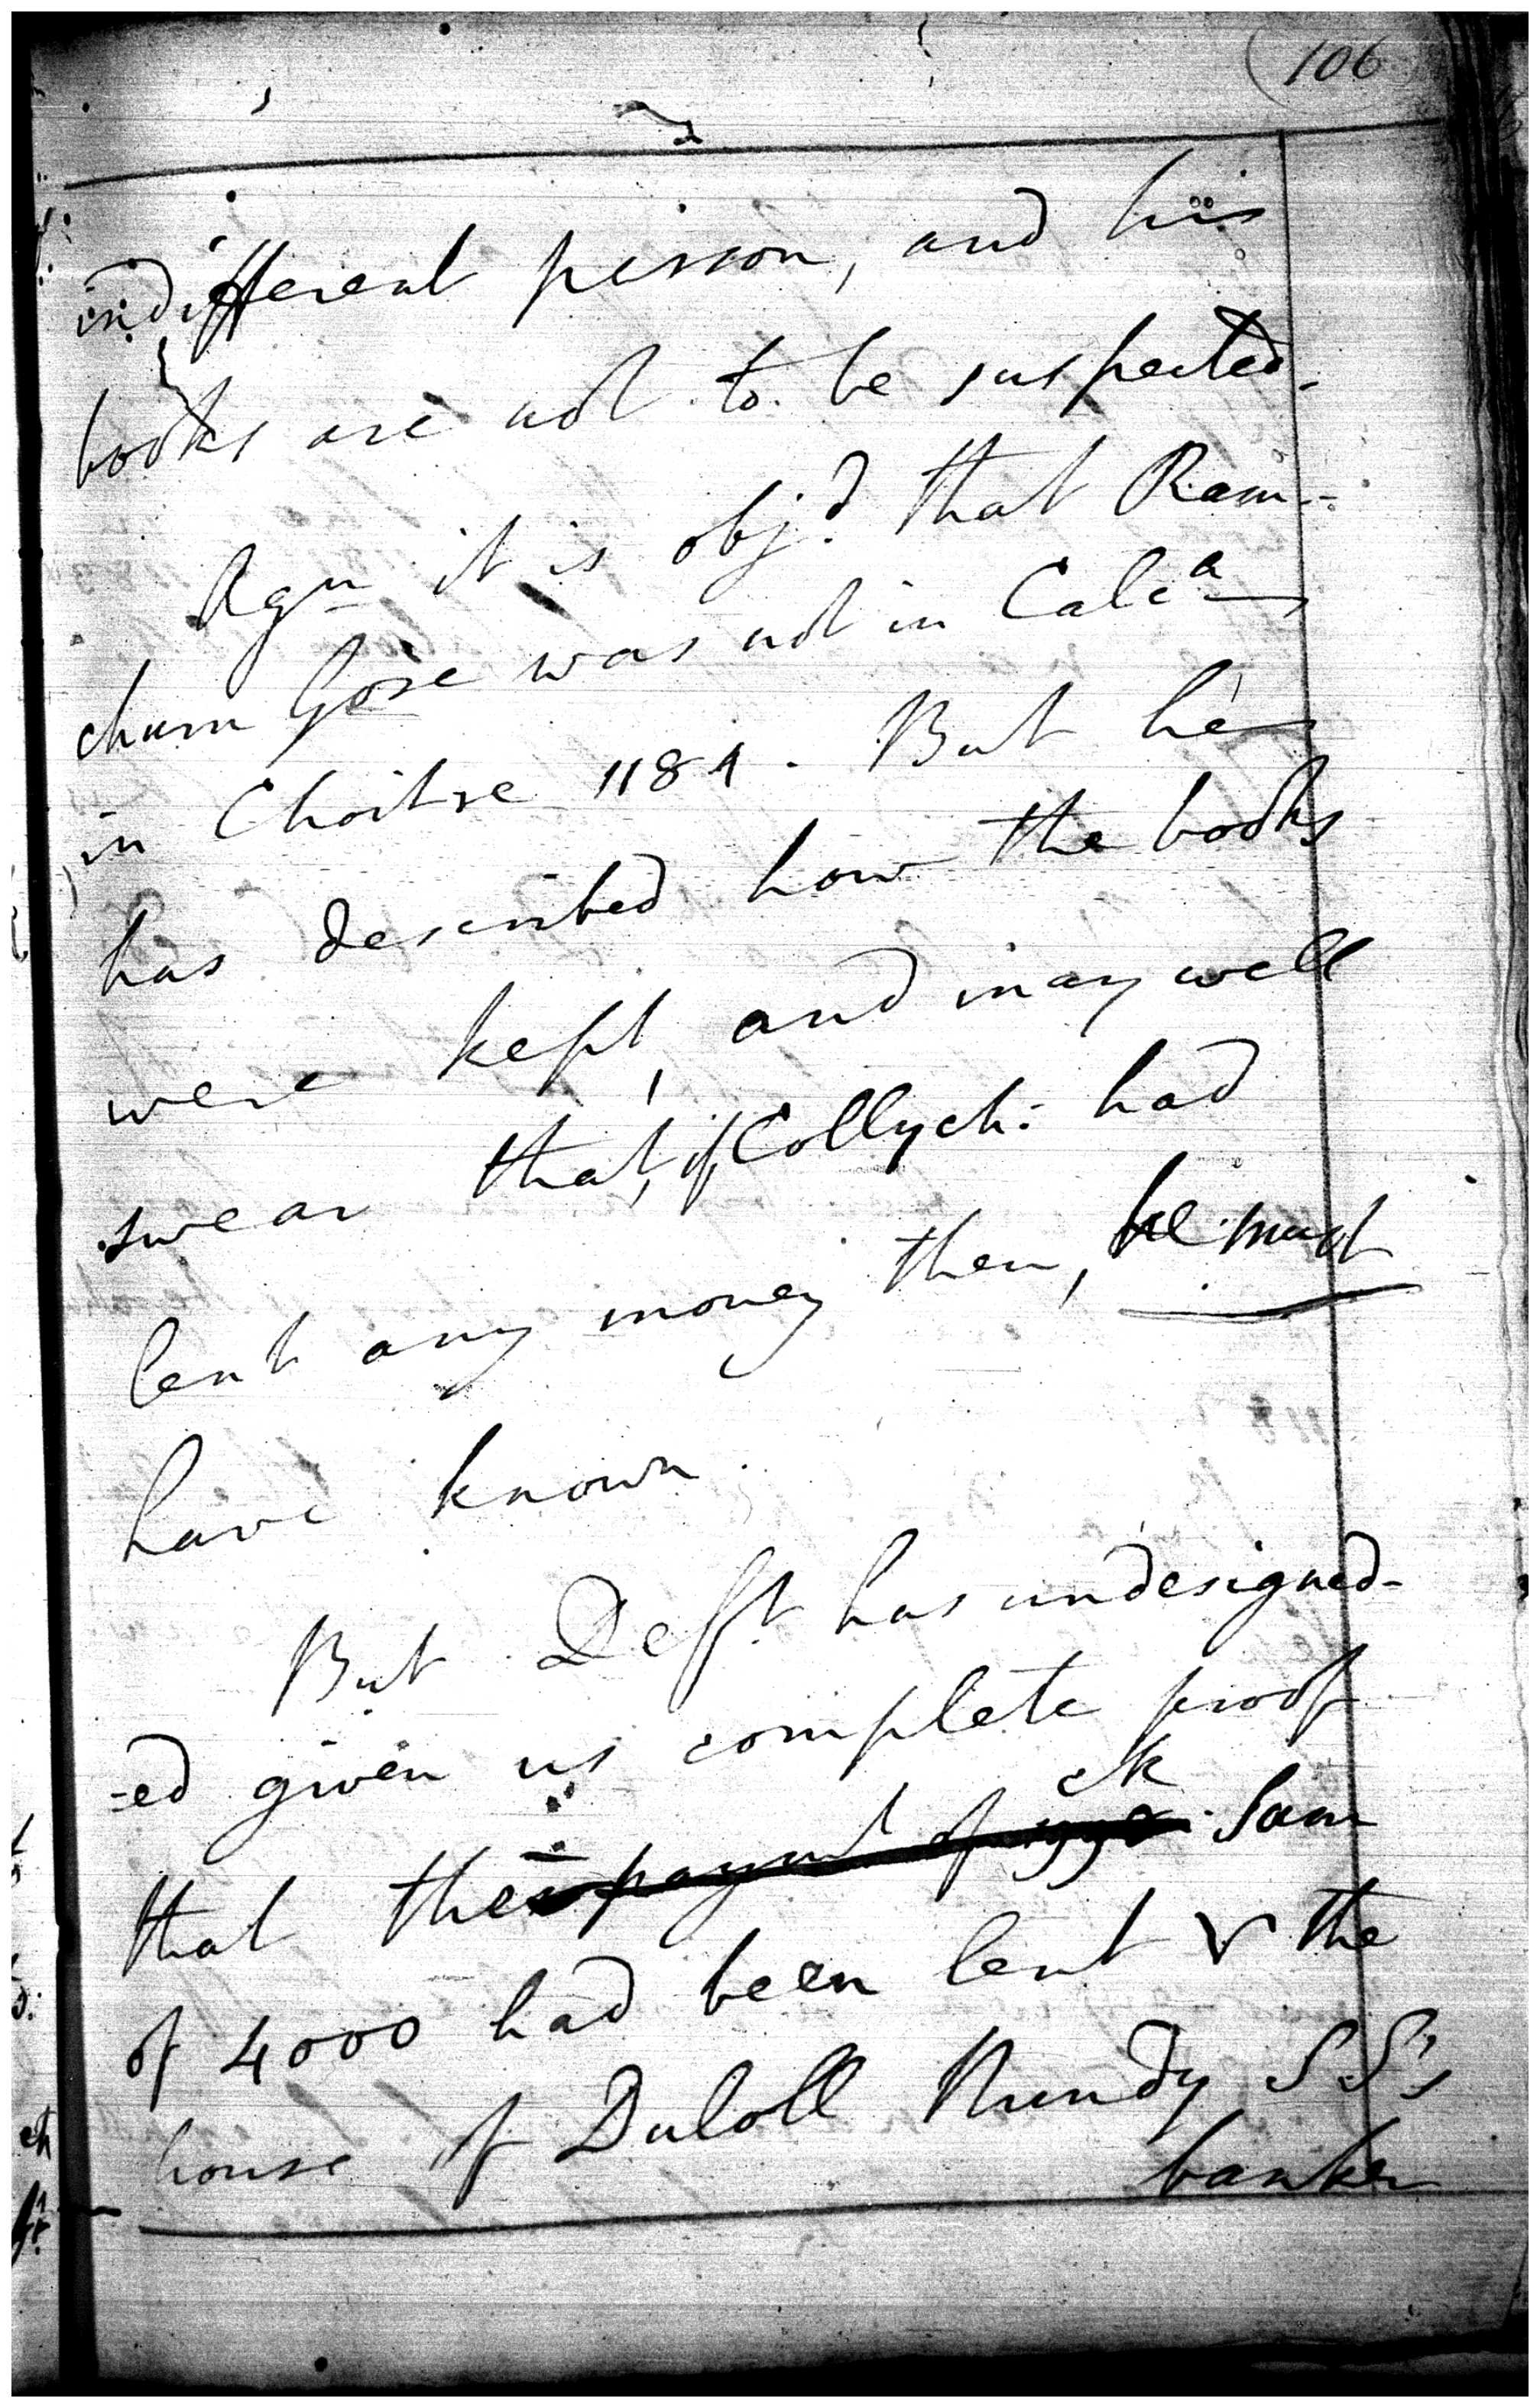 106
indifferent person, and his
books are not to be suspected.
Agn it is objd. that Ram-
churn Gose was not in Calca
in Choitre 1184. But he
has described how the books
were kept, and may well
swear that, if Collych: had
lent any money then, he must
have known.
But Deft. has undesigned-
-ed given us complete proof
that the paymt of Sum
of 4000 had been lent the
house of Duloll Nundy SS's
banker